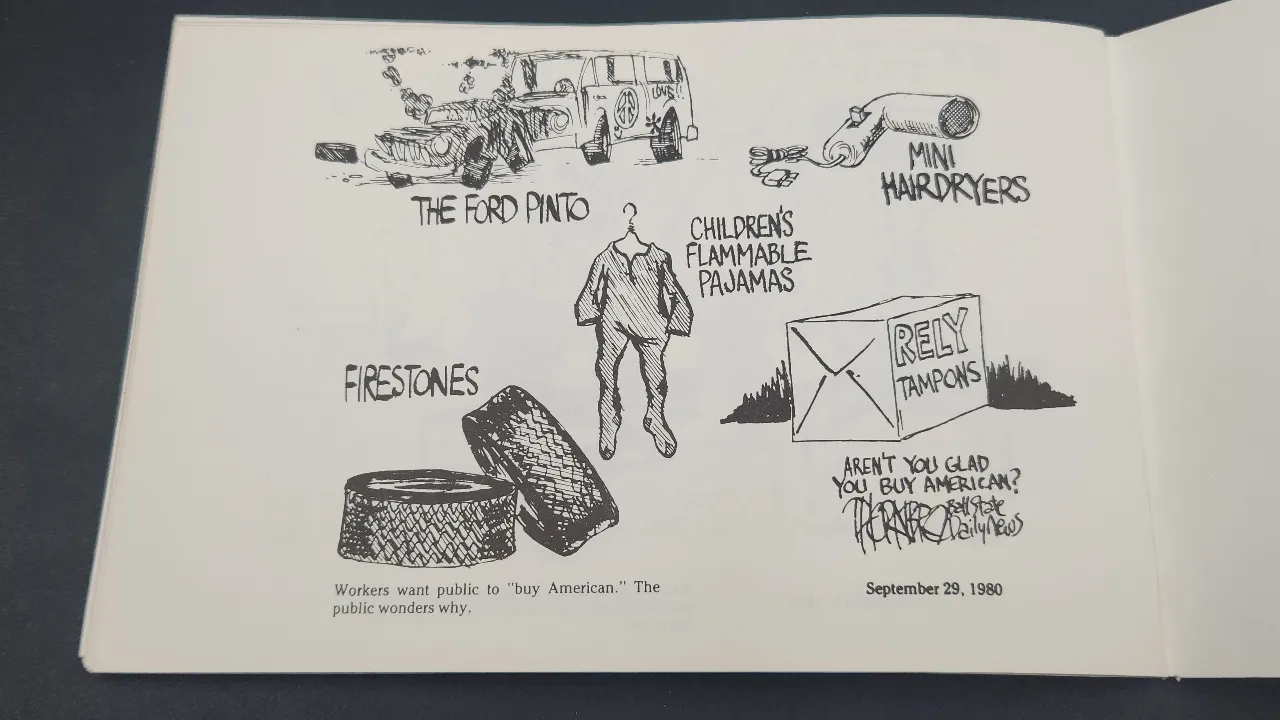 LOVE!!
THE FORD PINTO
MINI
HAIRDRYERS
CHILDREN'S
FLAMMABLE
PAJAMAS
FIRESTONES
RELY
TAMPONS
AREN'T YOU GLAD
YOU BUY AMERICAN?
THORNBRO Ball State
Daily News
Workers want public to "buy American." The
public wonders why.
September 29, 1980